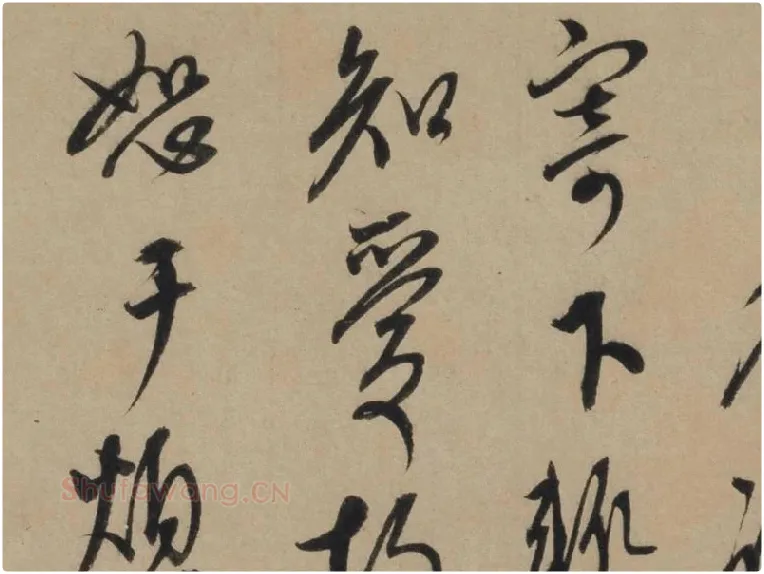 寄下
知愛
恕干煩
Shufawang.CN